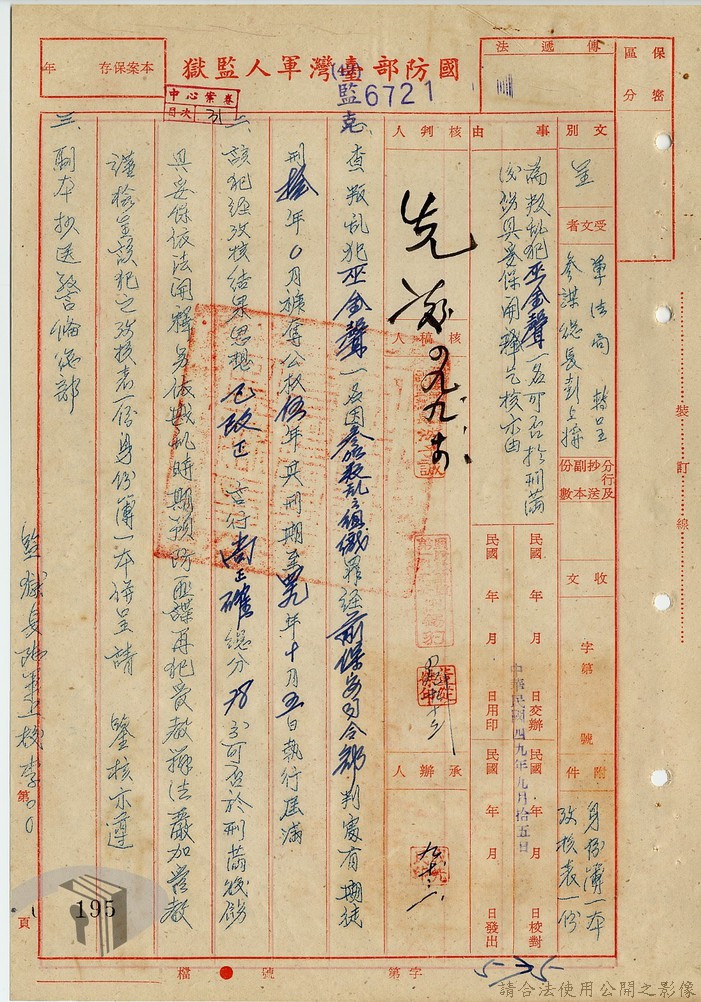 國防部臺灣軍人監獄
(49)
監克
6721
本案保存 年
中心案卷
目次 31
傳遞法
保密區分
文別 呈
受文者 軍法局 轉呈
參謀總長彭上將
分行及抄送副本份數
收文 字第 號
附件 身份簿一本
攷核表一份
事由
為叛乱犯巫金聲一名可否於刑滿
後飭具妥保開釋乞核示由
民國 年 月 日交辦
民國 年 月 日校對
民國 年 月 日用印
民國 年 月 日發出
中華民國四九年九月拾五日
核判人
核稿人
承辦人
一、查叛乱犯巫金聲一名因參加叛乱之組織罪經前保安司令部判處有期徒
刑拾年0月褫奪公权伍年其刑期至四九年十月五日執行届滿
二、該犯經攷核結果思想已改正言行尚正確總分78分可否於刑滿後飭
具妥保依法開釋另依戡乱時期預防匪諜再犯管教辦法嚴加管教
謹檢呈該犯之攷核表一份身份簿一本併呈請 鑒核示遵
三、副本抄送警備總部
監獄長陸軍上校李00
裝訂線
第 頁
195
檔 號
字第
5-35
請合法使用公開之影像